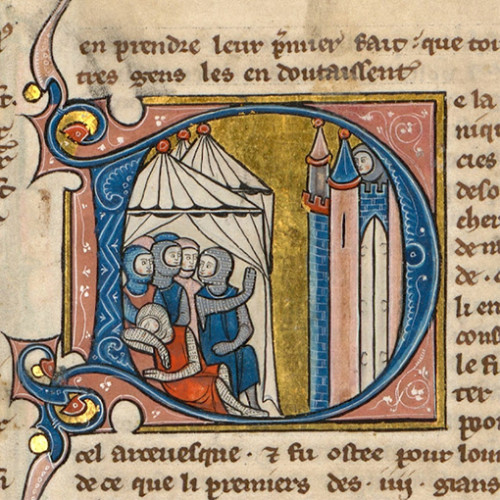 en prendre leur p̃mier fait · que tou
tres gens les en doutaissent
e la
niq
cies
deso
cher
de m
de ·
li en
le fi
ter
poo
cel arceuesque · ⁊ fu ostee pour lour
de ce que li premiers des · iiij · grans